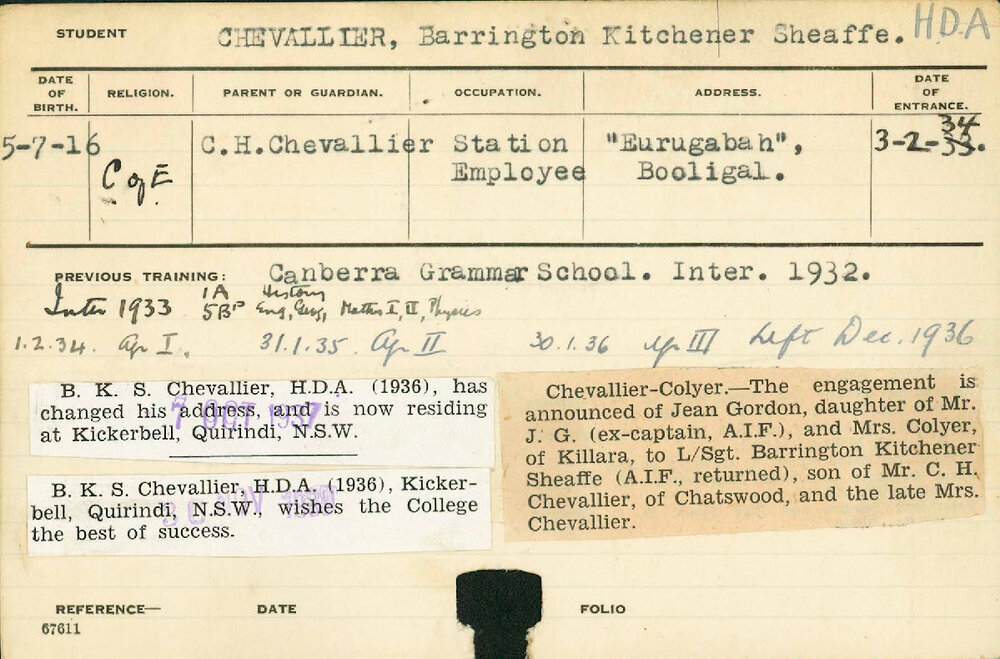 STUDENT CHEVALLIER, Barrington Kitchener Sheaffe. H.D.A
DATE OF BIRTH. RELIGION. PARENT OR GUARDIAN. OCCUPATION. ADDRESS. DATE OF ENTRANCE.
5-7-16 C of E C.H.Chevallier Station Employee "Eurugabah", Booligal. 3-2-33. 34
PREVIOUS TRAINING: Canberra Grammar School. Inter. 1932.
Inter 1933 1A History
5BP Eng, Geog, Maths I, II, Physics
1.2.34. Ap I. 31.1.35. Ap II 30.1.36 Ap III Left Dec. 1936
B. K. S. Chevallier, H.D.A. (1936), has
changed his address, and is now residing
at Kickerbell, Quirindi, N.S.W.
7 OCT 1937
B. K. S. Chevallier, H.D.A. (1936), Kicker-
bell, Quirindi, N.S.W., wishes the College
the best of success.
Chevallier-Colyer.—The engagement is
announced of Jean Gordon, daughter of Mr.
J. G. (ex-captain, A.I.F.), and Mrs. Colyer,
of Killara, to L/Sgt. Barrington Kitchener
Sheaffe (A.I.F., returned), son of Mr. C. H.
Chevallier, of Chatswood, and the late Mrs.
Chevallier.
REFERENCE— DATE FOLIO
67611